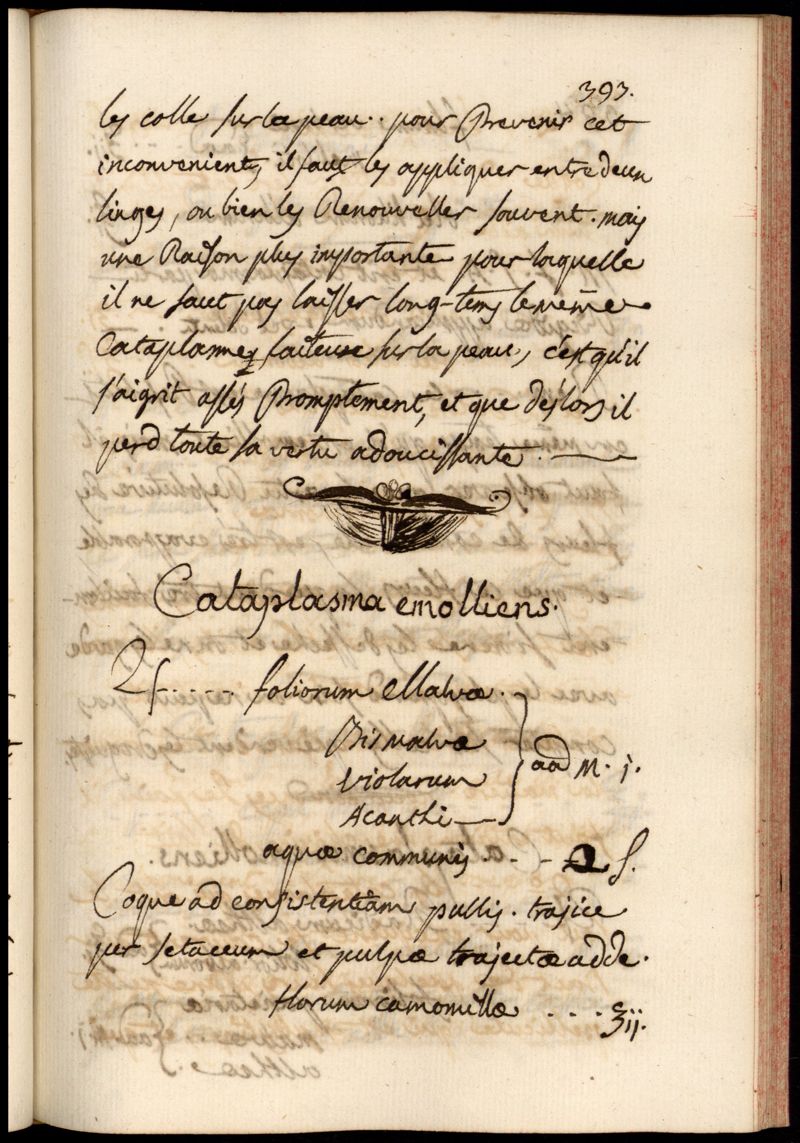 393.
les colle sur la peau. pour Prevenir cet
inconvenient, il faut les appliquer entre deux
linges, ou bien les Renouveller souvent. mais
une Raison plus importante pour laquelle
il ne faut pas laisser long-tems le même
Cataplasme laiteuse sur la peau, c'est qu'il
s'aigrit assés Promptement, et que déslors il
perd toute sa vertu adoucissante.
Cataplasma emolliens.
♃ ..... foliorum Malvæ.
Bismalvæ
violarum
Acanthi
aad M. j.
aquæ communis . - - Q S.
Coque ad consistentiam pultis. trajice
per setaceum et pulpæ trajectæ adde.
florum camomillæ .... ʒij.